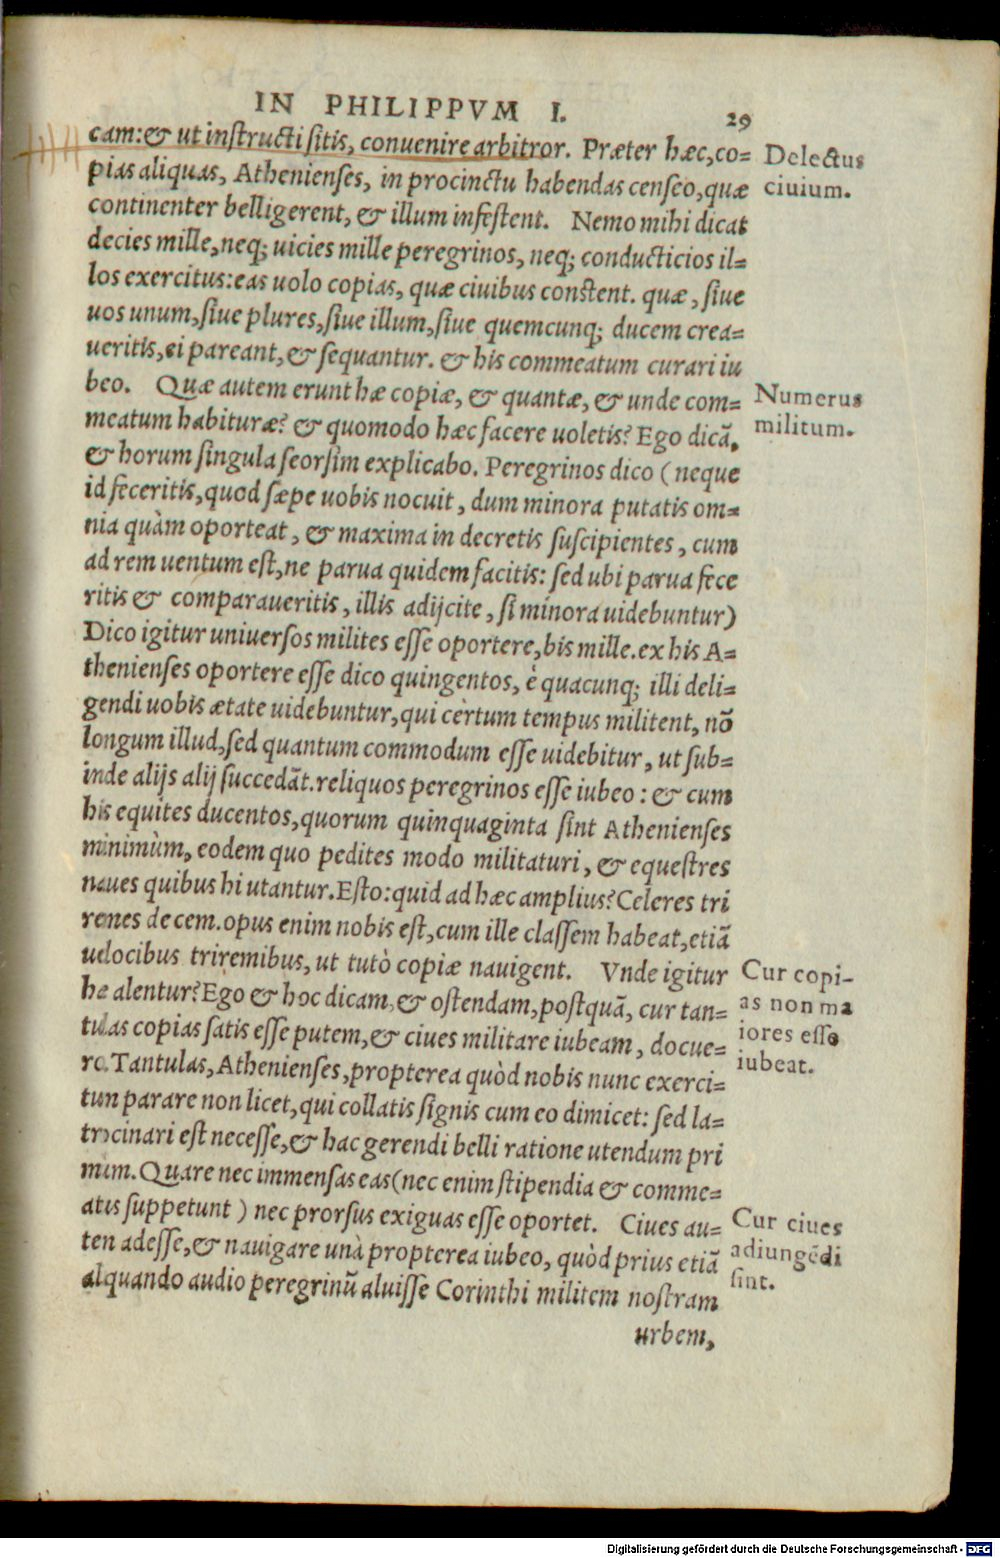 IN PHILIPPVM I. 29
cam: & ut instructi sitis, conuenire arbitror. Præter hæc, co=
pias aliquas, Athenienses, in procinctu habendas censeo, quæ
continenter belligerent, & illum infestent. Nemo mihi dicat
decies mille, neq; uicies mille peregrinos, neq; conducticios il=
los exercitus: eas uolo copias, quæ ciuibus constent. quæ, siue
uos unum, siue plures, siue illum, siue quemcunq; ducem crea=
ueritis, ei pareant, & sequantur. & his commeatum curari iu
beo. Quæ autem erunt hæ copiæ, & quantæ, & unde com=
meatum habituræ? & quomodo hæc facere uoletis? Ego dicã,
& horum singula seorsim explicabo. Peregrinos dico (neque
id feceritis, quod sæpe uobis nocuit, dum minora putatis om=
nia quàm oporteat, & maxima in decretis suscipientes, cum
ad rem uentum est, ne parua quidem facitis: sed ubi parua fece
ritis & comparaueritis, illis adijcite, si minora uidebuntur)
Dico igitur uniuersos milites esse oportere, bis mille. ex his A=
thenienses oportere esse dico quingentos, è quacunq; illi deli=
gendi uobis ætate uidebuntur, qui certum tempus militent, nõ
longum illud, sed quantum commodum esse uidebitur, ut sub=
inde alijs alij succedãt. reliquos peregrinos esse iubeo: & cum
his equites ducentos, quorum quinquaginta sint Athenienses
minimùm, eodem quo pedites modo militaturi, & equestres
naues quibus hi utantur. Esto: quid ad hæc amplius? Celeres tri
remes decem. opus enim nobis est, cum ille classem habeat, etiã
uelocibus triremibus, ut tutò copiæ nauigent. Vnde igitur
hæ alentur? Ego & hoc dicam, & ostendam, postquã, cur tan=
tulas copias satis esse putem, & ciues militare iubeam, docue=
ro. Tantulas, Athenienses, propterea quòd nobis nunc exerci=
tum parare non licet, qui collatis signis cum eo dimicet: sed la=
trocinari est necesse, & hac gerendi belli ratione utendum pri
mùm. Quare nec immensas eas (nec enim stipendia & comme=
atus suppetunt) nec prorsus exiguas esse oportet. Ciues au=
tem adesse, & nauigare unà propterea iubeo, quòd prius etiã
aliquando audio peregrinũ aluisse Corinthi militem nostram
urbem,
Delectus
ciuium.
Numerus
militum.
Cur copi-
as non ma
iores esse
iubeat.
Cur ciues
adiungẽdi
sint.
Digitalisierung gefördert durch die Deutsche Forschungsgemeinschaft - DFG